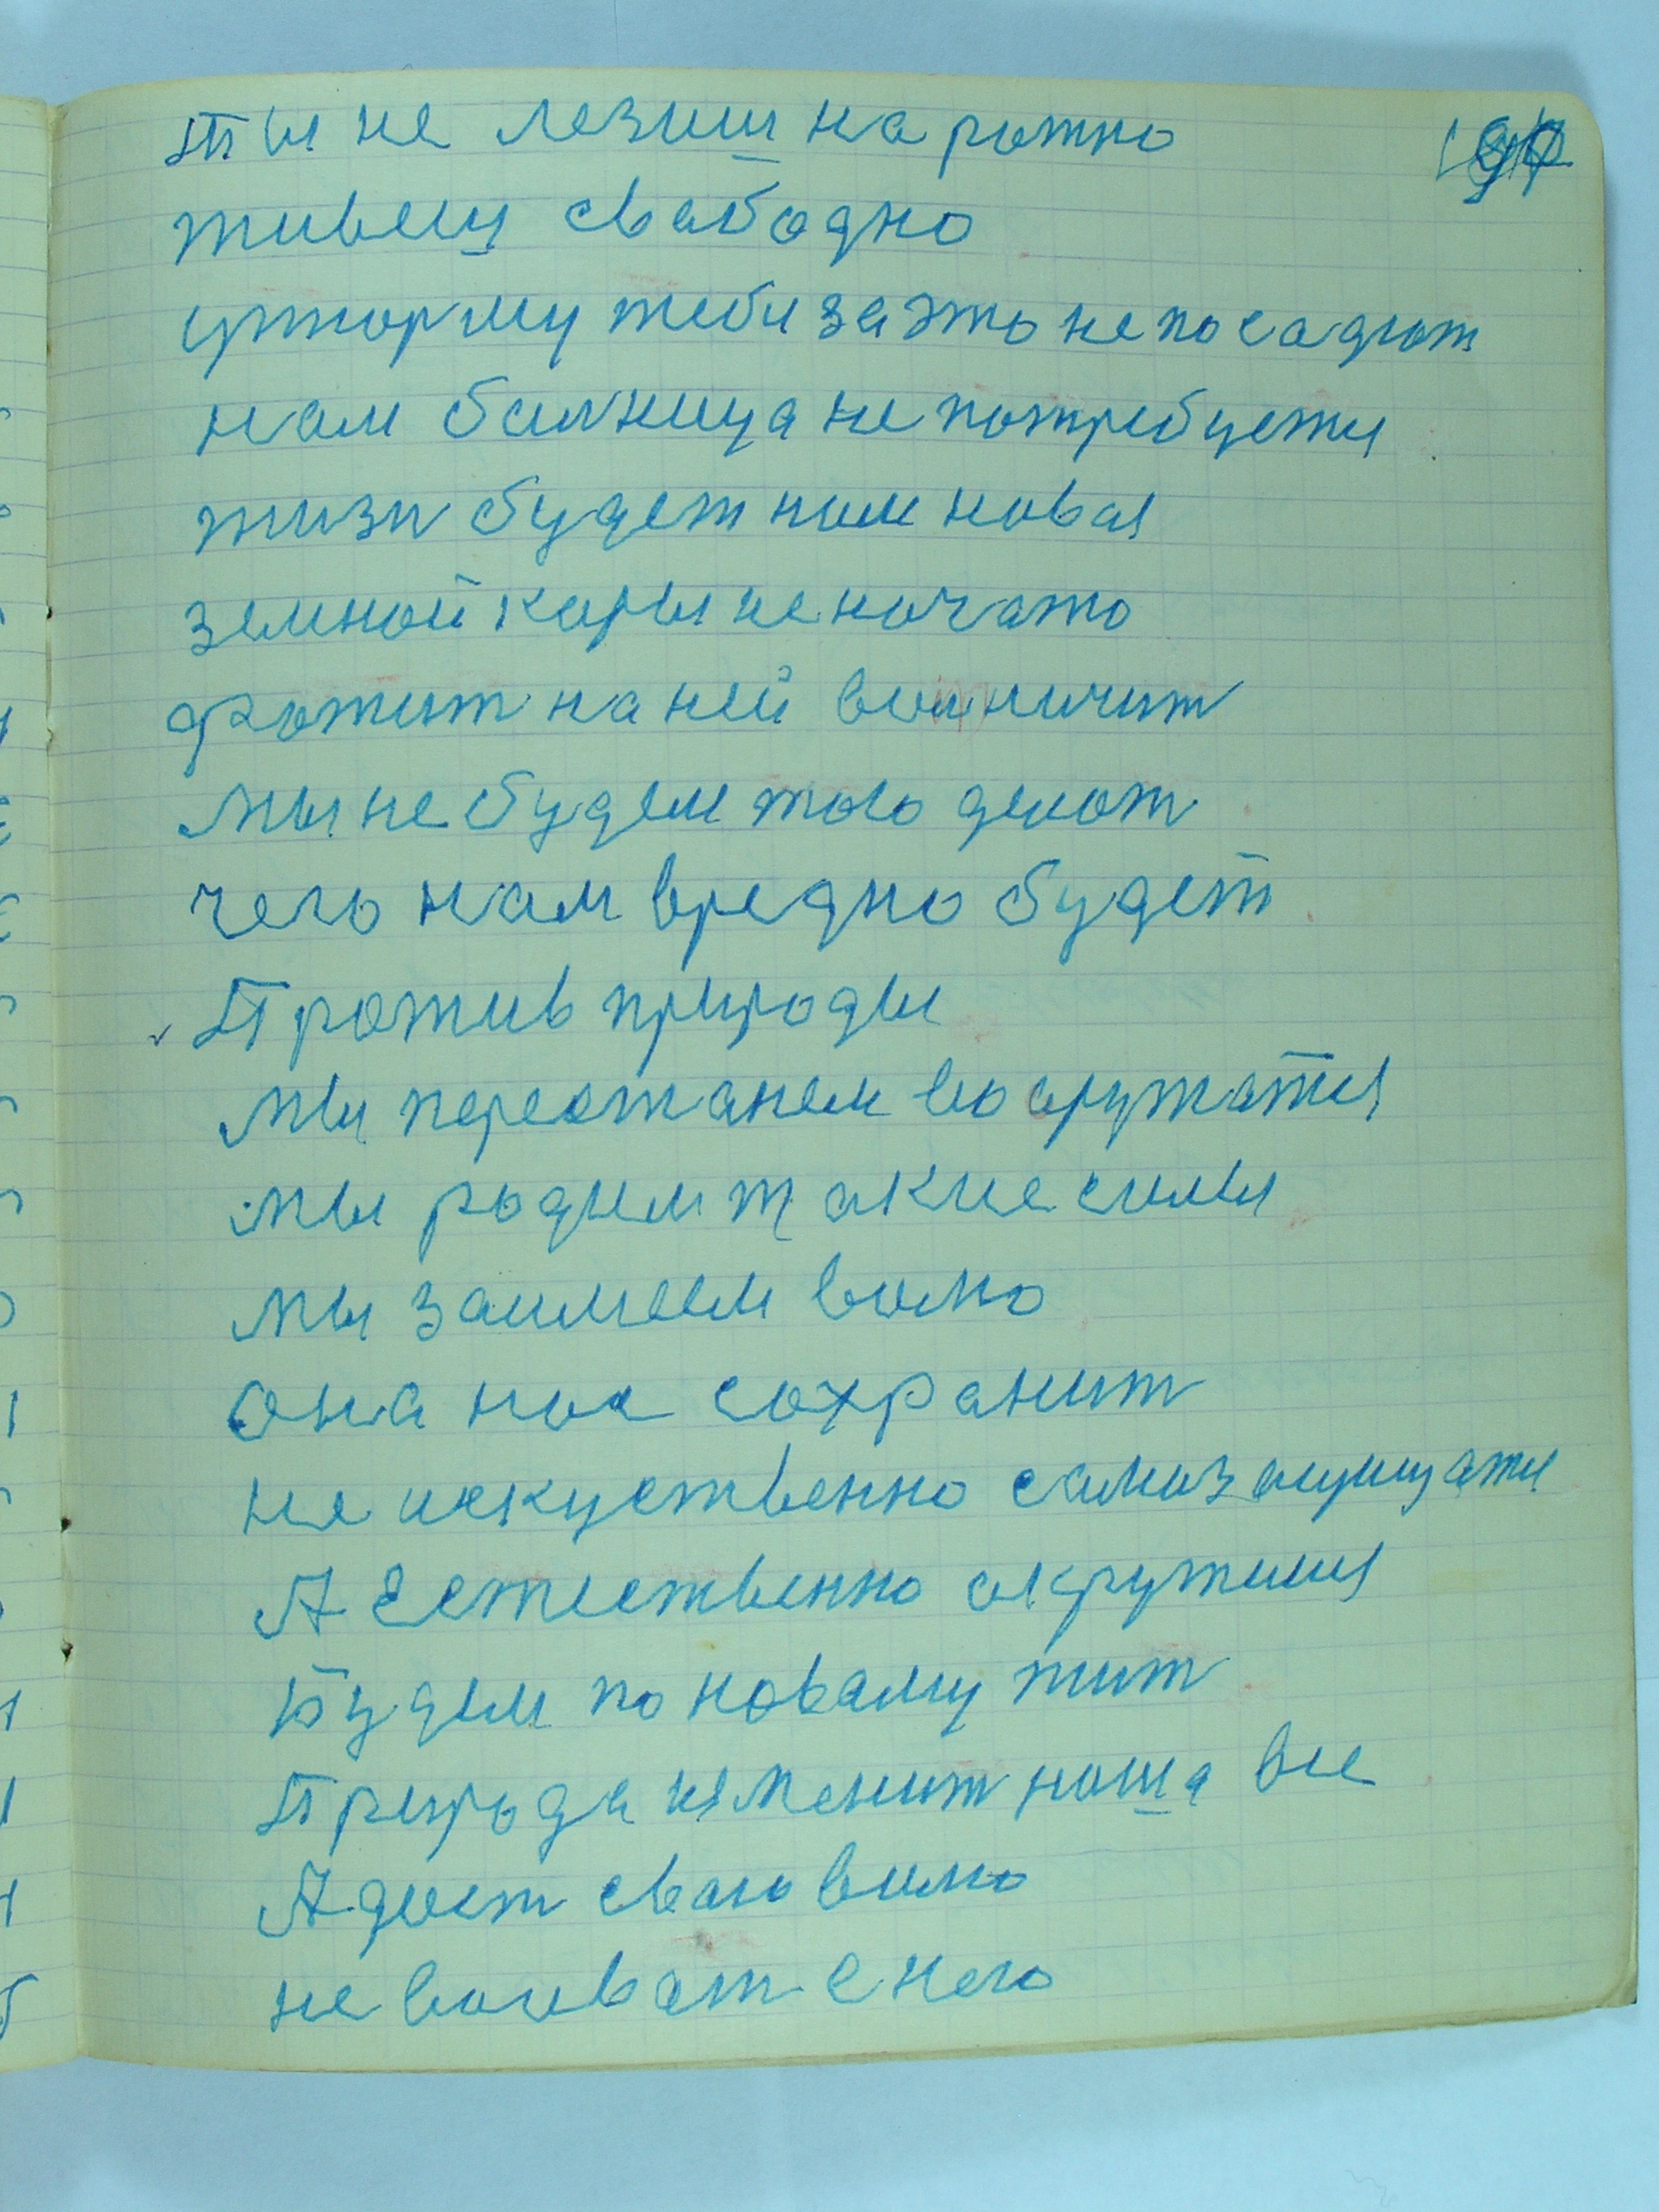 Ты не лезиш на ротно
живеш свабодно
утюрму тебя за это не посадют
нам балница не потребуется
жизн будет нам новая
земной коры не начато
фронт на ней
мы не будем того делат
чего нам вредно будет
Против природы
мы перестанем вооружатся
мы родим такие силы
мы заимеем волю
она нас сохранит
не искуственно самозащищатся
А Естественно окружимся
Будем по новаму жит
Природа изменит наша все
А даст сваю волю
не воеват с нею